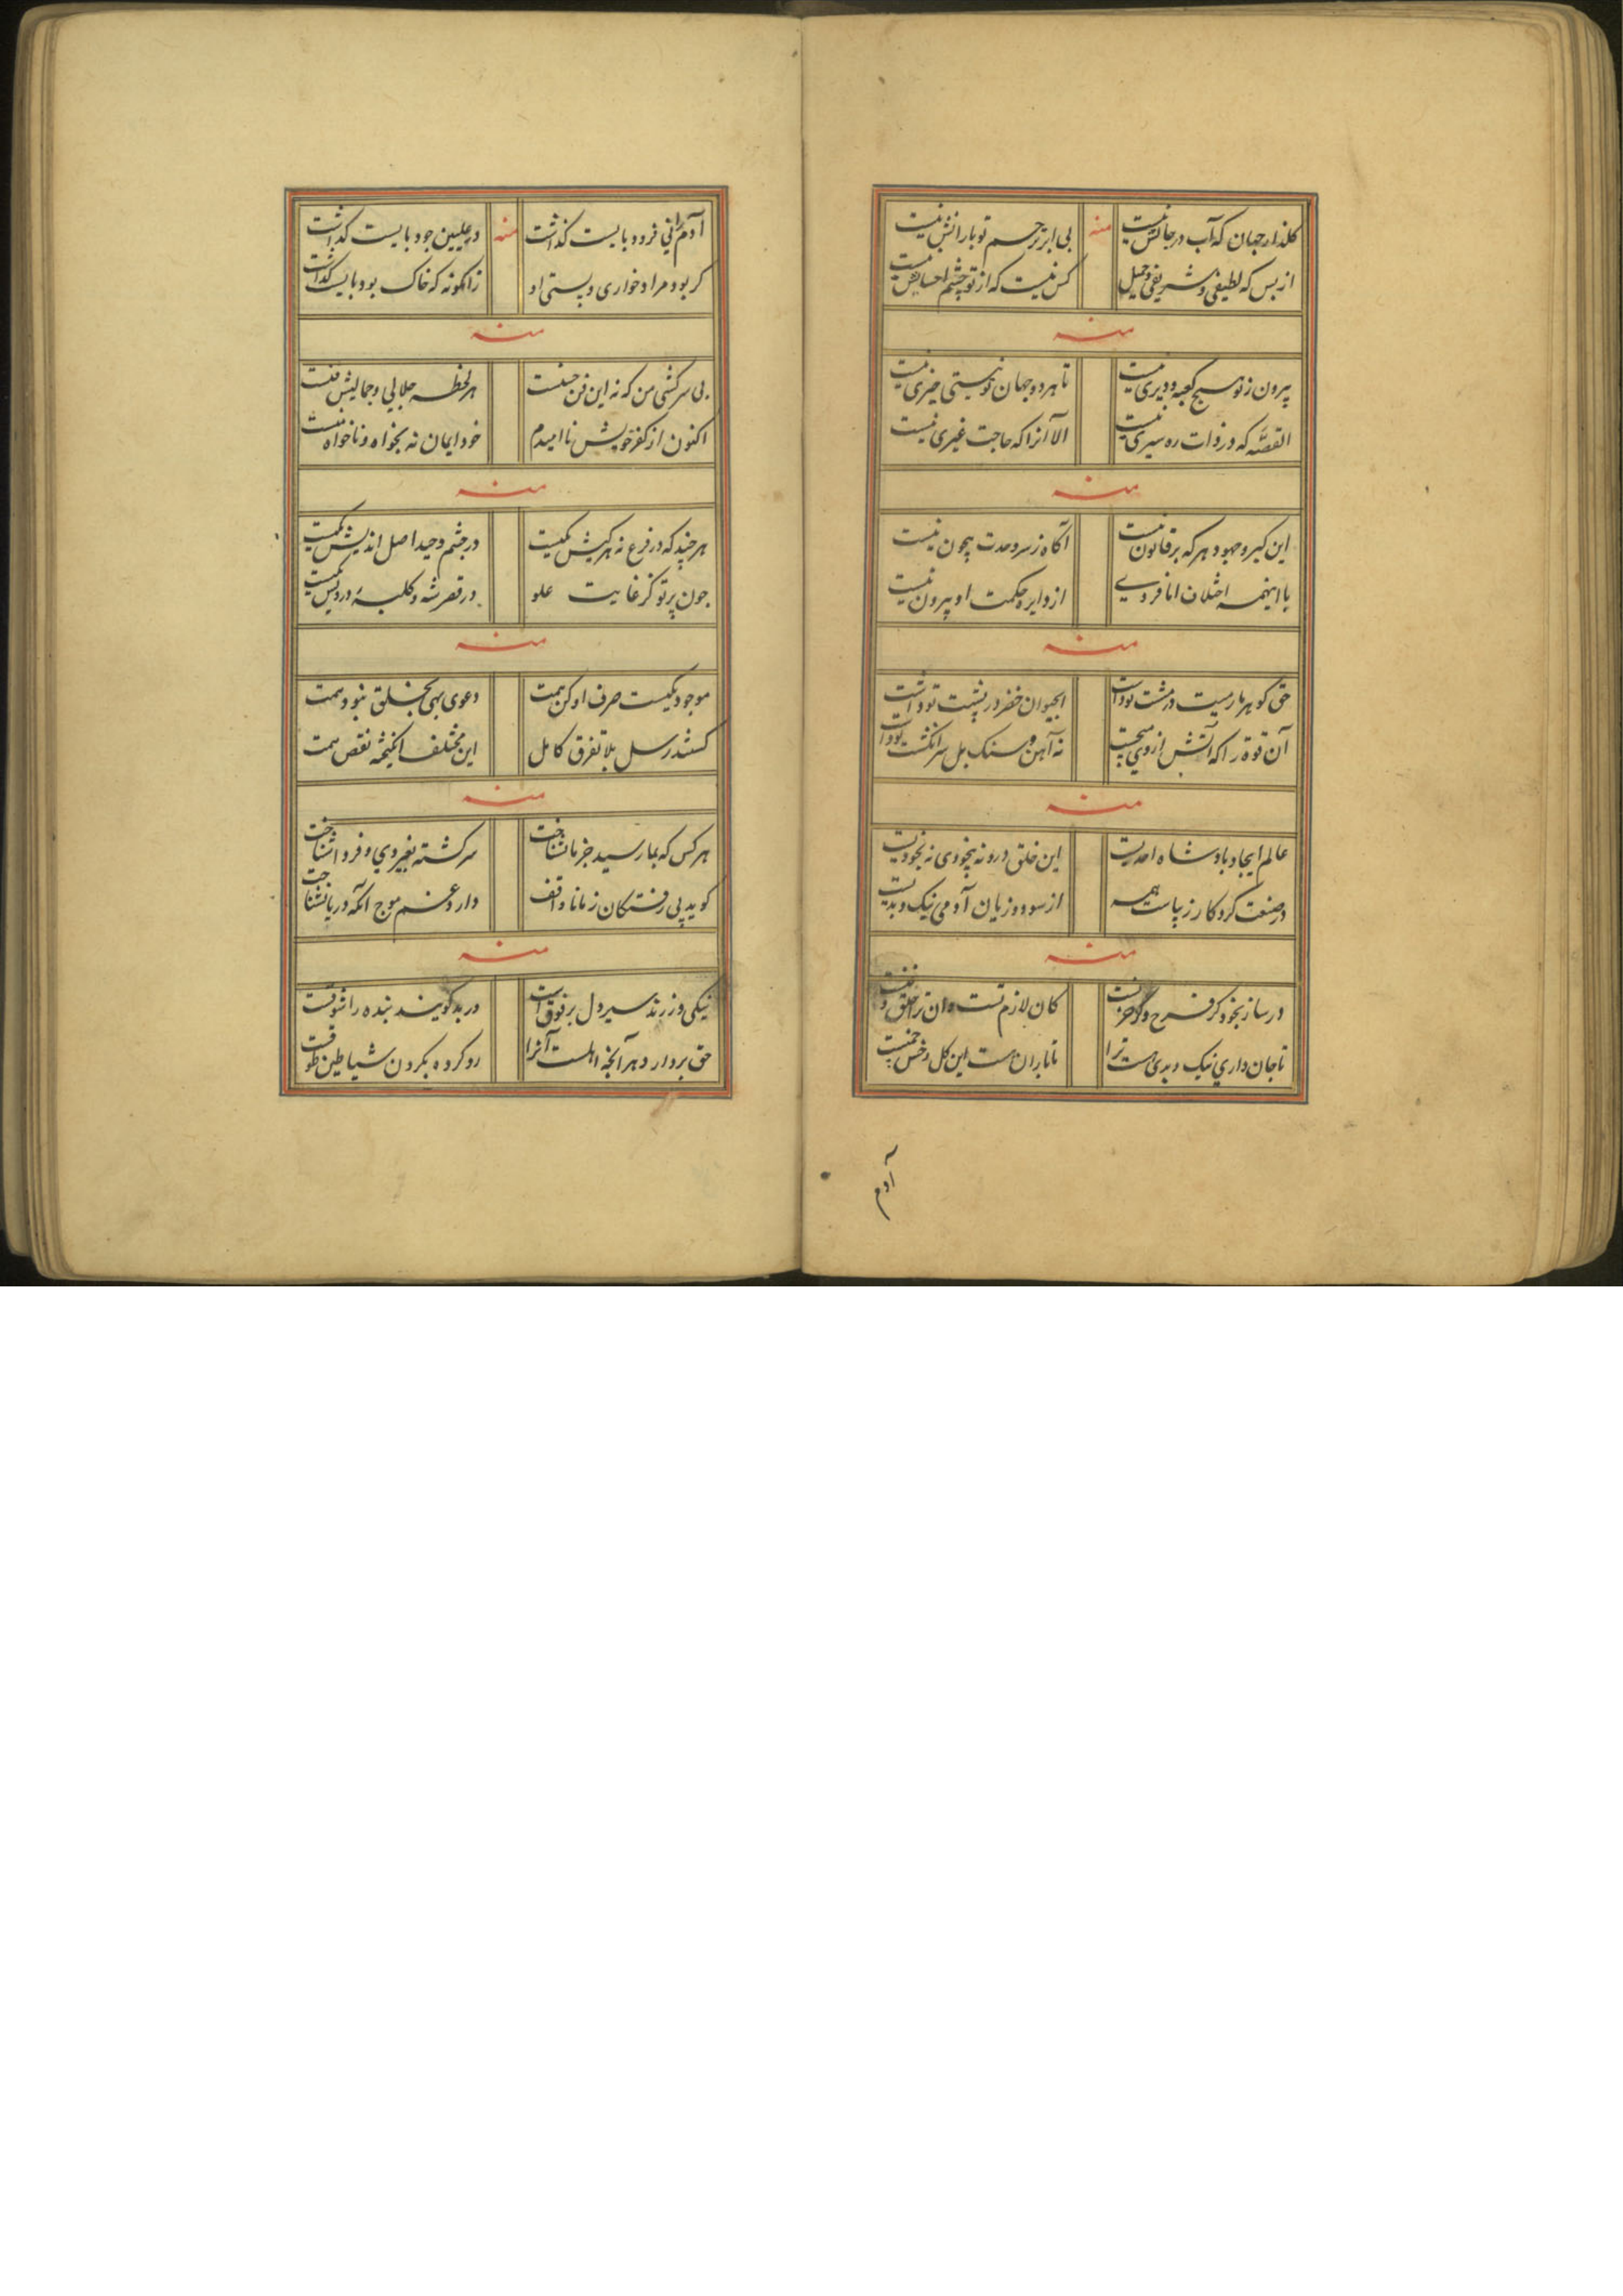 کلذار جهان که آب در جانش نیست منه بی ابر ترحم تو بارانش نیست
از بس که لطیفی و شریفی و جمیل کس نیست که از تو چشم احسانش نیست
منه
بیرون ز تو هیچ کعبه و دیری نیست تا هر دو جهان تو نیستی خیری نیست
القصّه که در ذات ره سیری نیست الا آنرا که حاجت غیری نیست
منه
این کبر و جهود و هر که بر قانون نیست آکاه ز سر وحدت بیچون نیست
با اینهمه اختلاف از دایره حکمت او بیرون نیست
منه
حق کوهر بارسیت در مشت تو داشت ابحیوان خضر در پشت تو داشت
آن قوة را که آتش از وی نه آهن و سنک بل سر انکشت تو داشت
منه
عالم ایجاد بادشاه احدیت این خلق درو نه بیخودی نه بخودیت
در صنعت کردکار زیباست همه از سود و زیان آدمی نیک و بدیست
منه
در ساز بخود کر فرح و کر حزنست کان لازم تست وان ترا خلق و فنست
تا جان داری نیک و بدی هست ترا تا باران هست این کل و خس چمنیست
آدم
آدم را نی فرود بایست کذاشت منه در علیین جود بایست کذاشت
کر بود مراد خواری و پستی او زانکونه که خاک بود بایست کذاشت
منه
بی سرکشی من که نه این فن حسنست هر لحظه جلالی و جمالیش فنست
اکنون از کفر خویش نا امیدم خود ایمان نه بخواه و ناخواه منست
منه
هر چند که در فرع نه هر کیش یکیست در چشم وحید اصل اندیش یکیست
چون پرتو کز غایت علو در قصر شه و کلبهٔ درویش یکیست
منه
موجود یکیست صرف او کن همت دعوی بهی بخلق نبود سمت
کشتند رسل بلا تفرق کامل این مختلف انکیخته نقص همت
منه
هر کس که بما رسید جز ما نشناخت سرکشته بغیر وی و فردا نشناخت
کوید پی رفتکان ز مانا واقف دارد غم موج آنکه دریا نشناخت
منه
نیکی ورزند سیر دل بر فوقست در بد کویند بنده را شوقست
حق بردارد هر آنچه اهلست آنرا رو کرده بکردن شیاطین طوقست